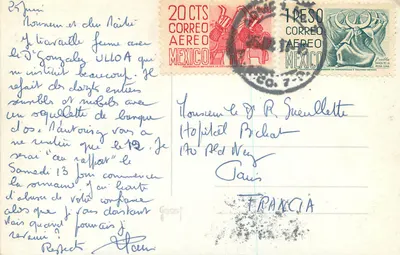 25 Juin
Monsieur et cher Maître
J'y travaille ferme avec
le Dr Gonzalez ULLOA qui
m'instruit beaucoup. Je
refait des doigts entiers
sensibles et mobiles avec
un squelette de banque
d'os.
vous a
que le 12. Je
serai "au rapport" le
Samedi 13 pour commencer
la semaine. J'ai honte
d'abuser de votre confiance
alors que je vais
mais quand pourrais-je
revenir?
Respects
20 CTS
CORREO
AEREO
MEXICO
1 PESO
CORREO
AEREO
MEXICO
Monsieur le Dr R. Gueullette
Hôpital Bichat
170 Bld Ney
Paris
FRANCIA